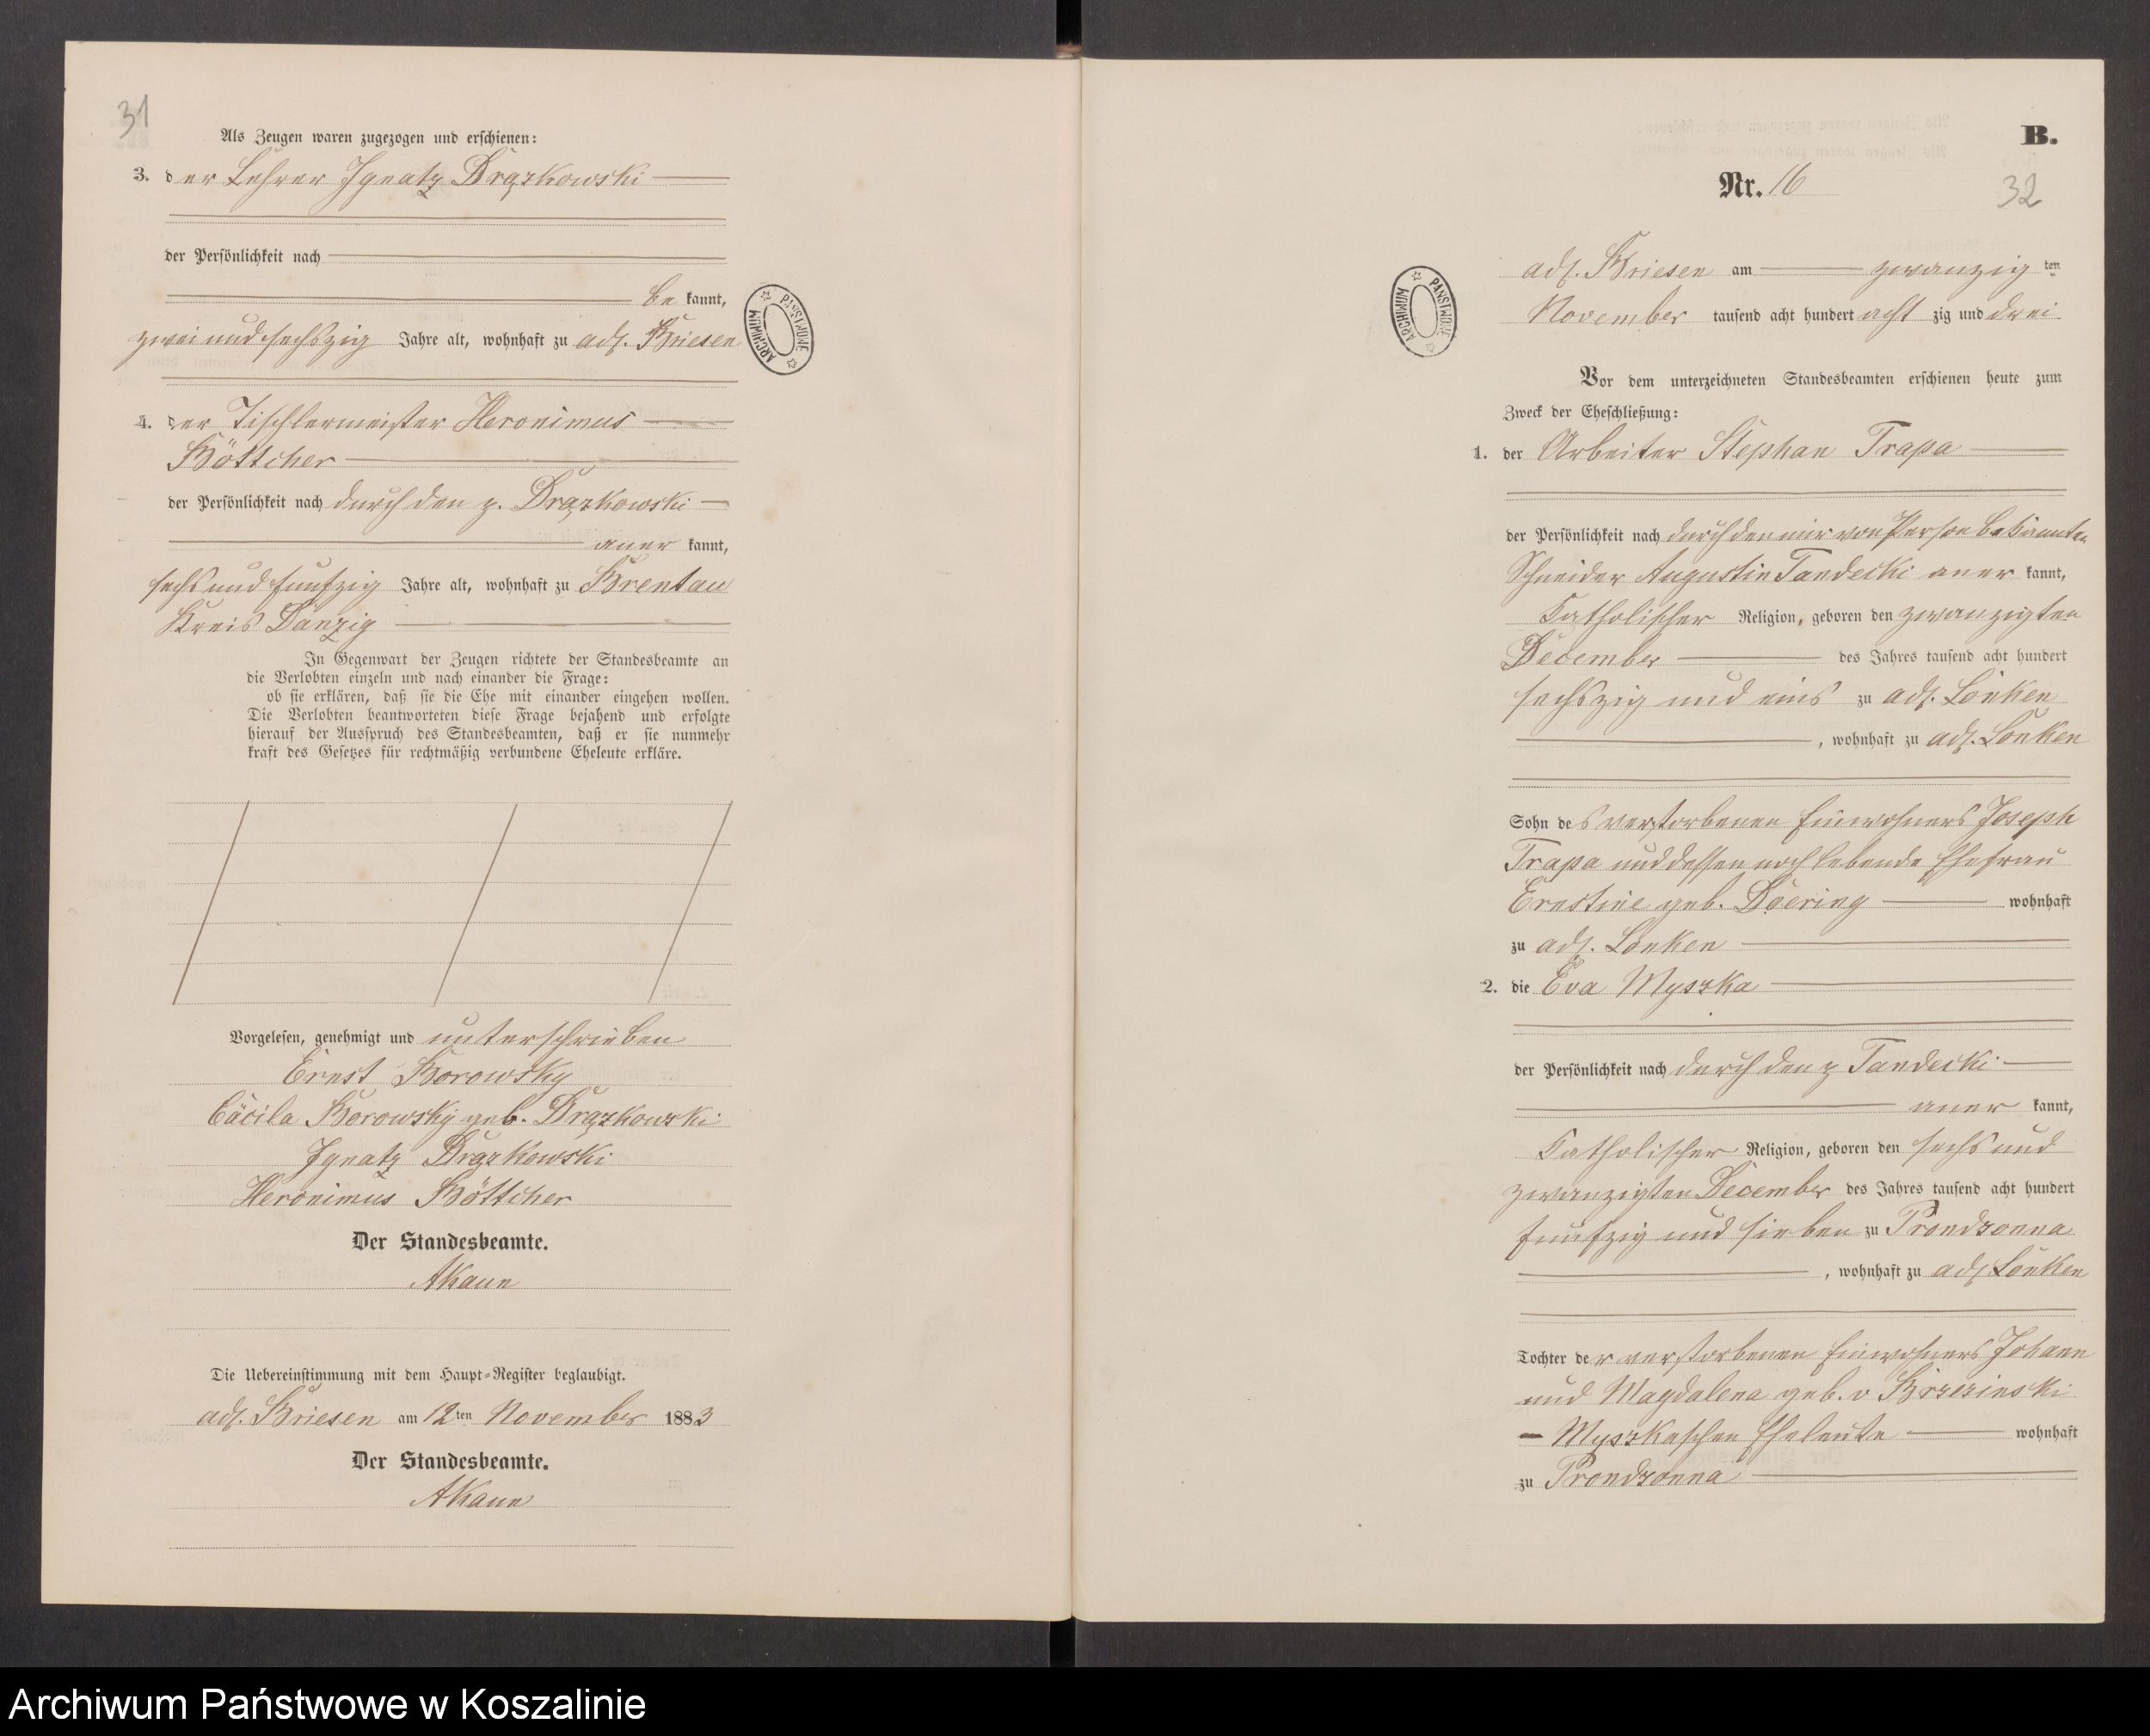 31
Als Zeugen waren zugezogen und erschienen:
3. der Lehrer Ignatz Drązkowski
der Persönlichkeit nach
be kannt,
zwei und sechszig Jahre alt, wohnhaft zu adl. Briesen
4. der Tischlermeister Heronimus
Böttcher
der Persönlichkeit nach durch den p. Drązkowski
aner kannt,
sechs und funfzig Jahre alt, wohnhaft zu Brentau
Kreis Danzig
In Gegenwart der Zeugen richtete der Standesbeamte an
die Verlobten einzeln und nach einander die Frage:
ob sie erklären, daß sie die Ehe mit einander eingehen wollen.
Die Verlobten beantworteten diese Frage bejahend und erfolgte
hierauf der Ausspruch des Standesbeamten, daß er sie nunmehr
kraft des Gesetzes für rechtmäßig verbundene Eheleute erkläre.
Vorgelesen, genehmigt und unterschrieben
Ernst Borowsky
Cäcila Borowsky geb. Drązkowski
Ignatz Drązkowski
Heronimus Böttcher
Der Standesbeamte.
AKaun
Die Uebereinstimmung mit dem Haupt-Register beglaubigt.
adl. Briesen am 12ten November 1883
Der Standesbeamte.
AKaun
ARCHIWUM PAŃSTWOWE
B.
Nr. 16
32
ARCHIWUM PAŃSTWOWE
adl. Briesen am zwanzig ten
November tausend acht hundert acht zig und drei
Vor dem unterzeichneten Standesbeamten erschienen heute zum
Zweck der Eheschließung:
1. der Arbeiter Stephan Trapa
der Persönlichkeit nach durch den mir von Person bekannten
Schneider Augustin Tandecki aner kannt,
Katholischer Religion, geboren den zwanzigten
December des Jahres tausend acht hundert
sechszig und eins zu adl. Lonken
, wohnhaft zu adl. Lonken
Sohn des verstorbenen Einwohners Joseph
Trapa und dessen noch lebende Ehefrau
Ernstine geb. Doering wohnhaft
zu adl. Lonken
2. die Eva Myszka
der Persönlichkeit nach durch den p Tandecki
aner kannt,
Katholischer Religion, geboren den sechs und
zwanzigten December des Jahres tausend acht hundert
funfzig und sieben zu Prondzonna
, wohnhaft zu adl Lonken
Tochter der verstorbenen Einwohners Johann
und Magdalena geb. v Brzezinski
- Myszkaschen Eheleute wohnhaft
zu Prondzonna
Archiwum Państwowe w Koszalinie